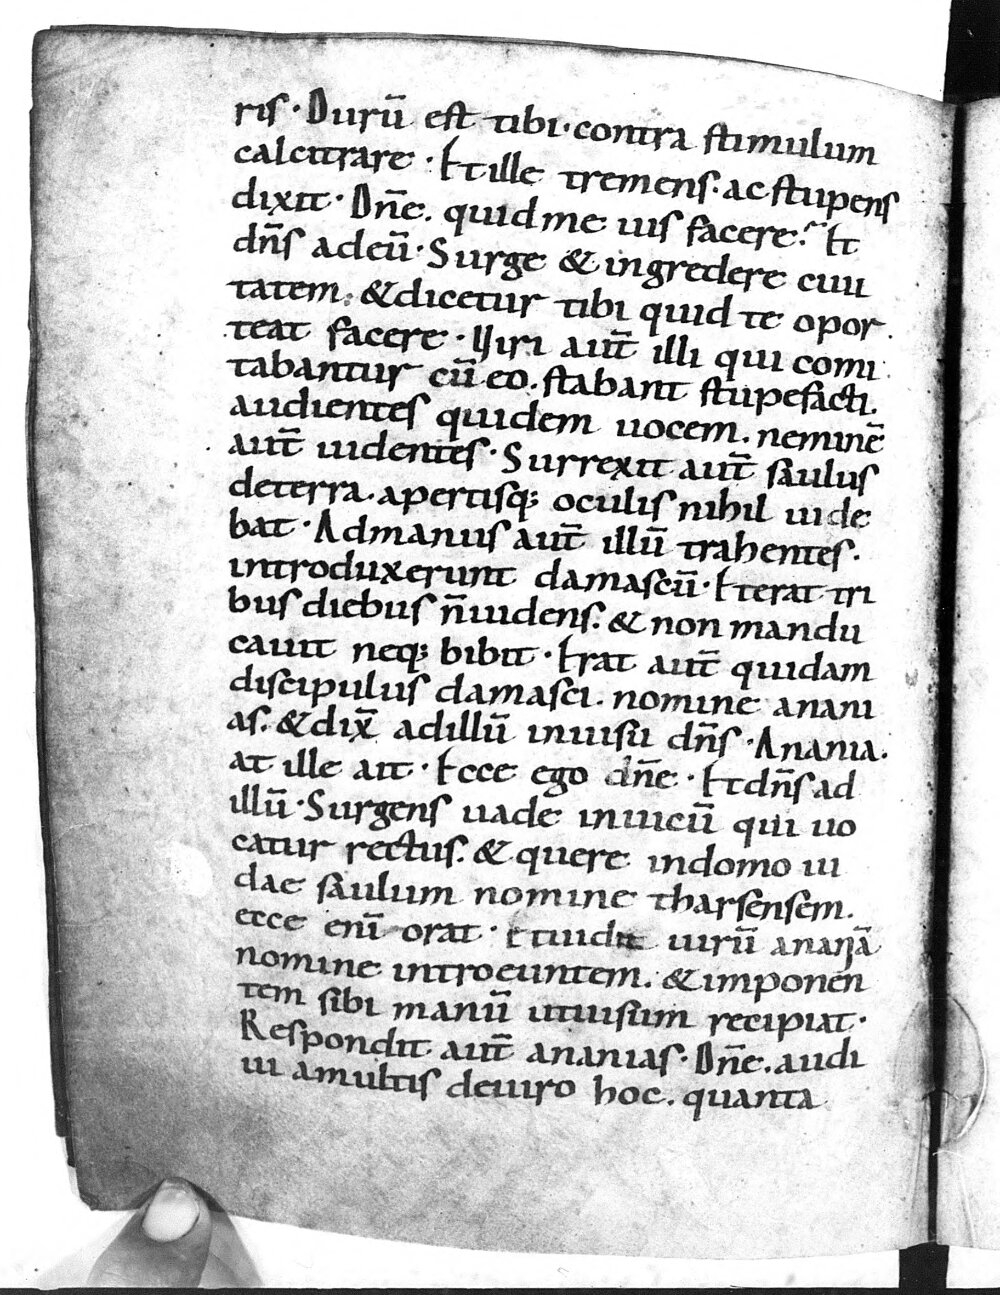 ris · Durū est tibi · contra stimulum
calcitrare · Et ille tremens · ac stupens
dixit · Dñe . quid me uis facere · Et
dñs adeū · Surge & ingredere ciui
tatem . & dicetur tibi quid te opor
teat facere · Viri aūt illi qui comi
tabantur cū eo . stabant stupefacti .
audientes quidem uocem . neminē
aūt uidentes · Surrexit aūt saulus
deterra . apertisq; oculis nihil uide
bat · Admanus aūt illū trahentes ·
introduxerunt damascū · Et erat tri
bus diebus ñ uidens . & non mandu
cauit neq; bibit · Erat aūt quidam
discipulus damasci . nomine anani
as . & dix̄ adillū inuisū dñs · Anania .
at ille ait · Ecce ego dñe · Et dñs ad
illū · Surgens uade inuicū qui uo
catur rectus . & quere indomo iu
dae saulum nomine tharsensem .
ecce enī orat · Et uidit uirū ananiā
nomine introeuntem . & imponen
tem sibi manū ut uisum recipiat ·
Respondit aūt ananias · Dñe . audi
ui amultis deuiro hoc . quanta